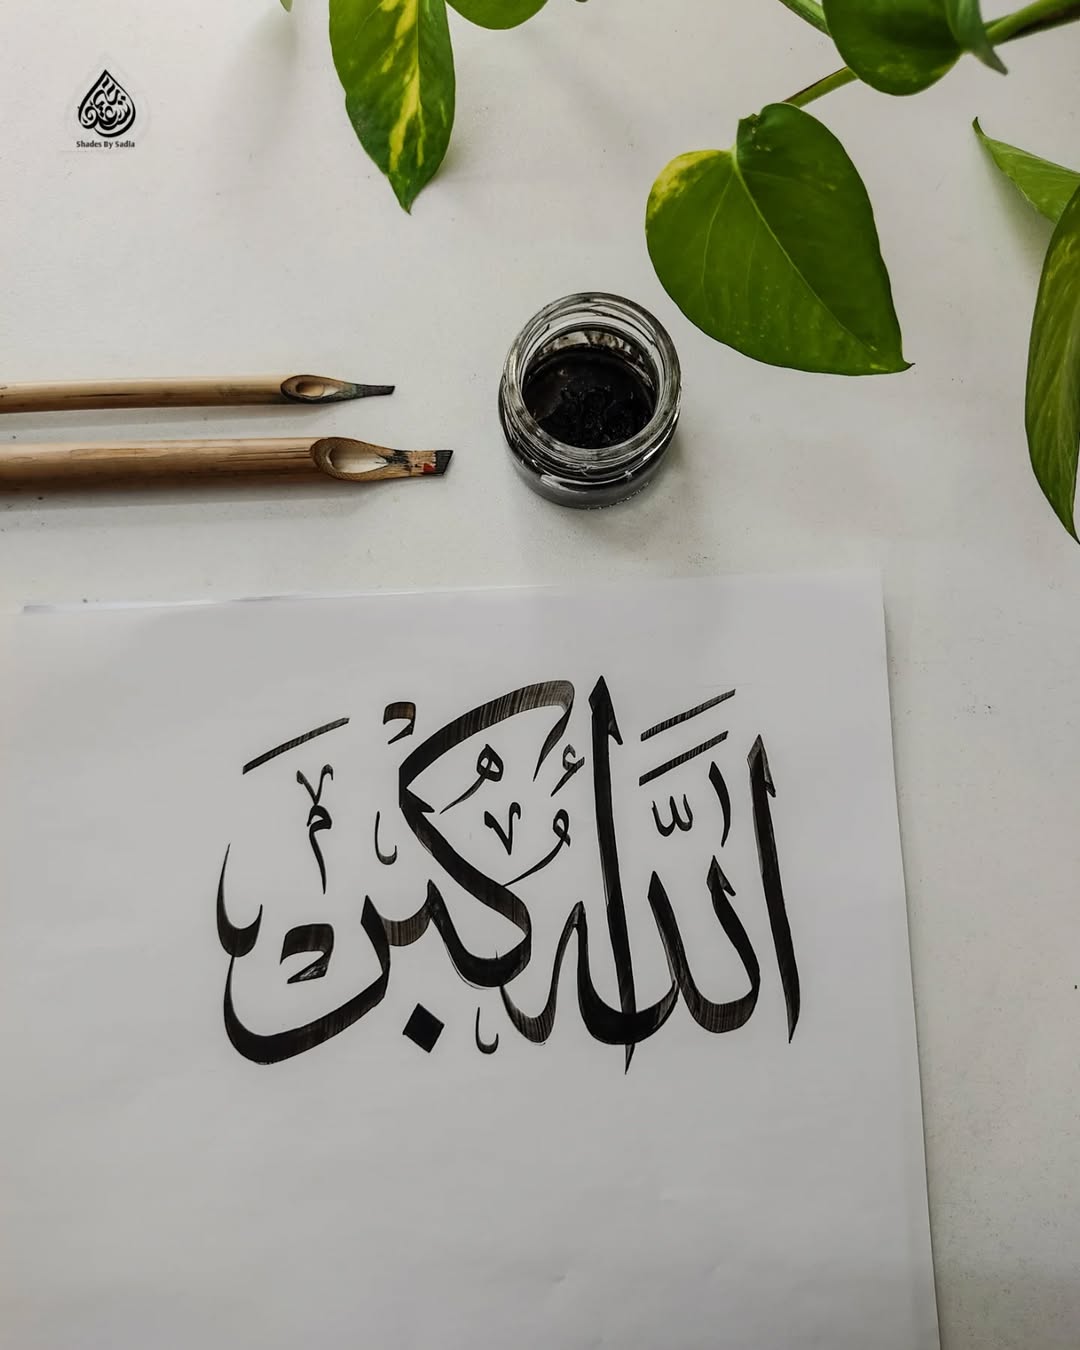 Shades By Sadia
اللَّهُ أَكْبَر